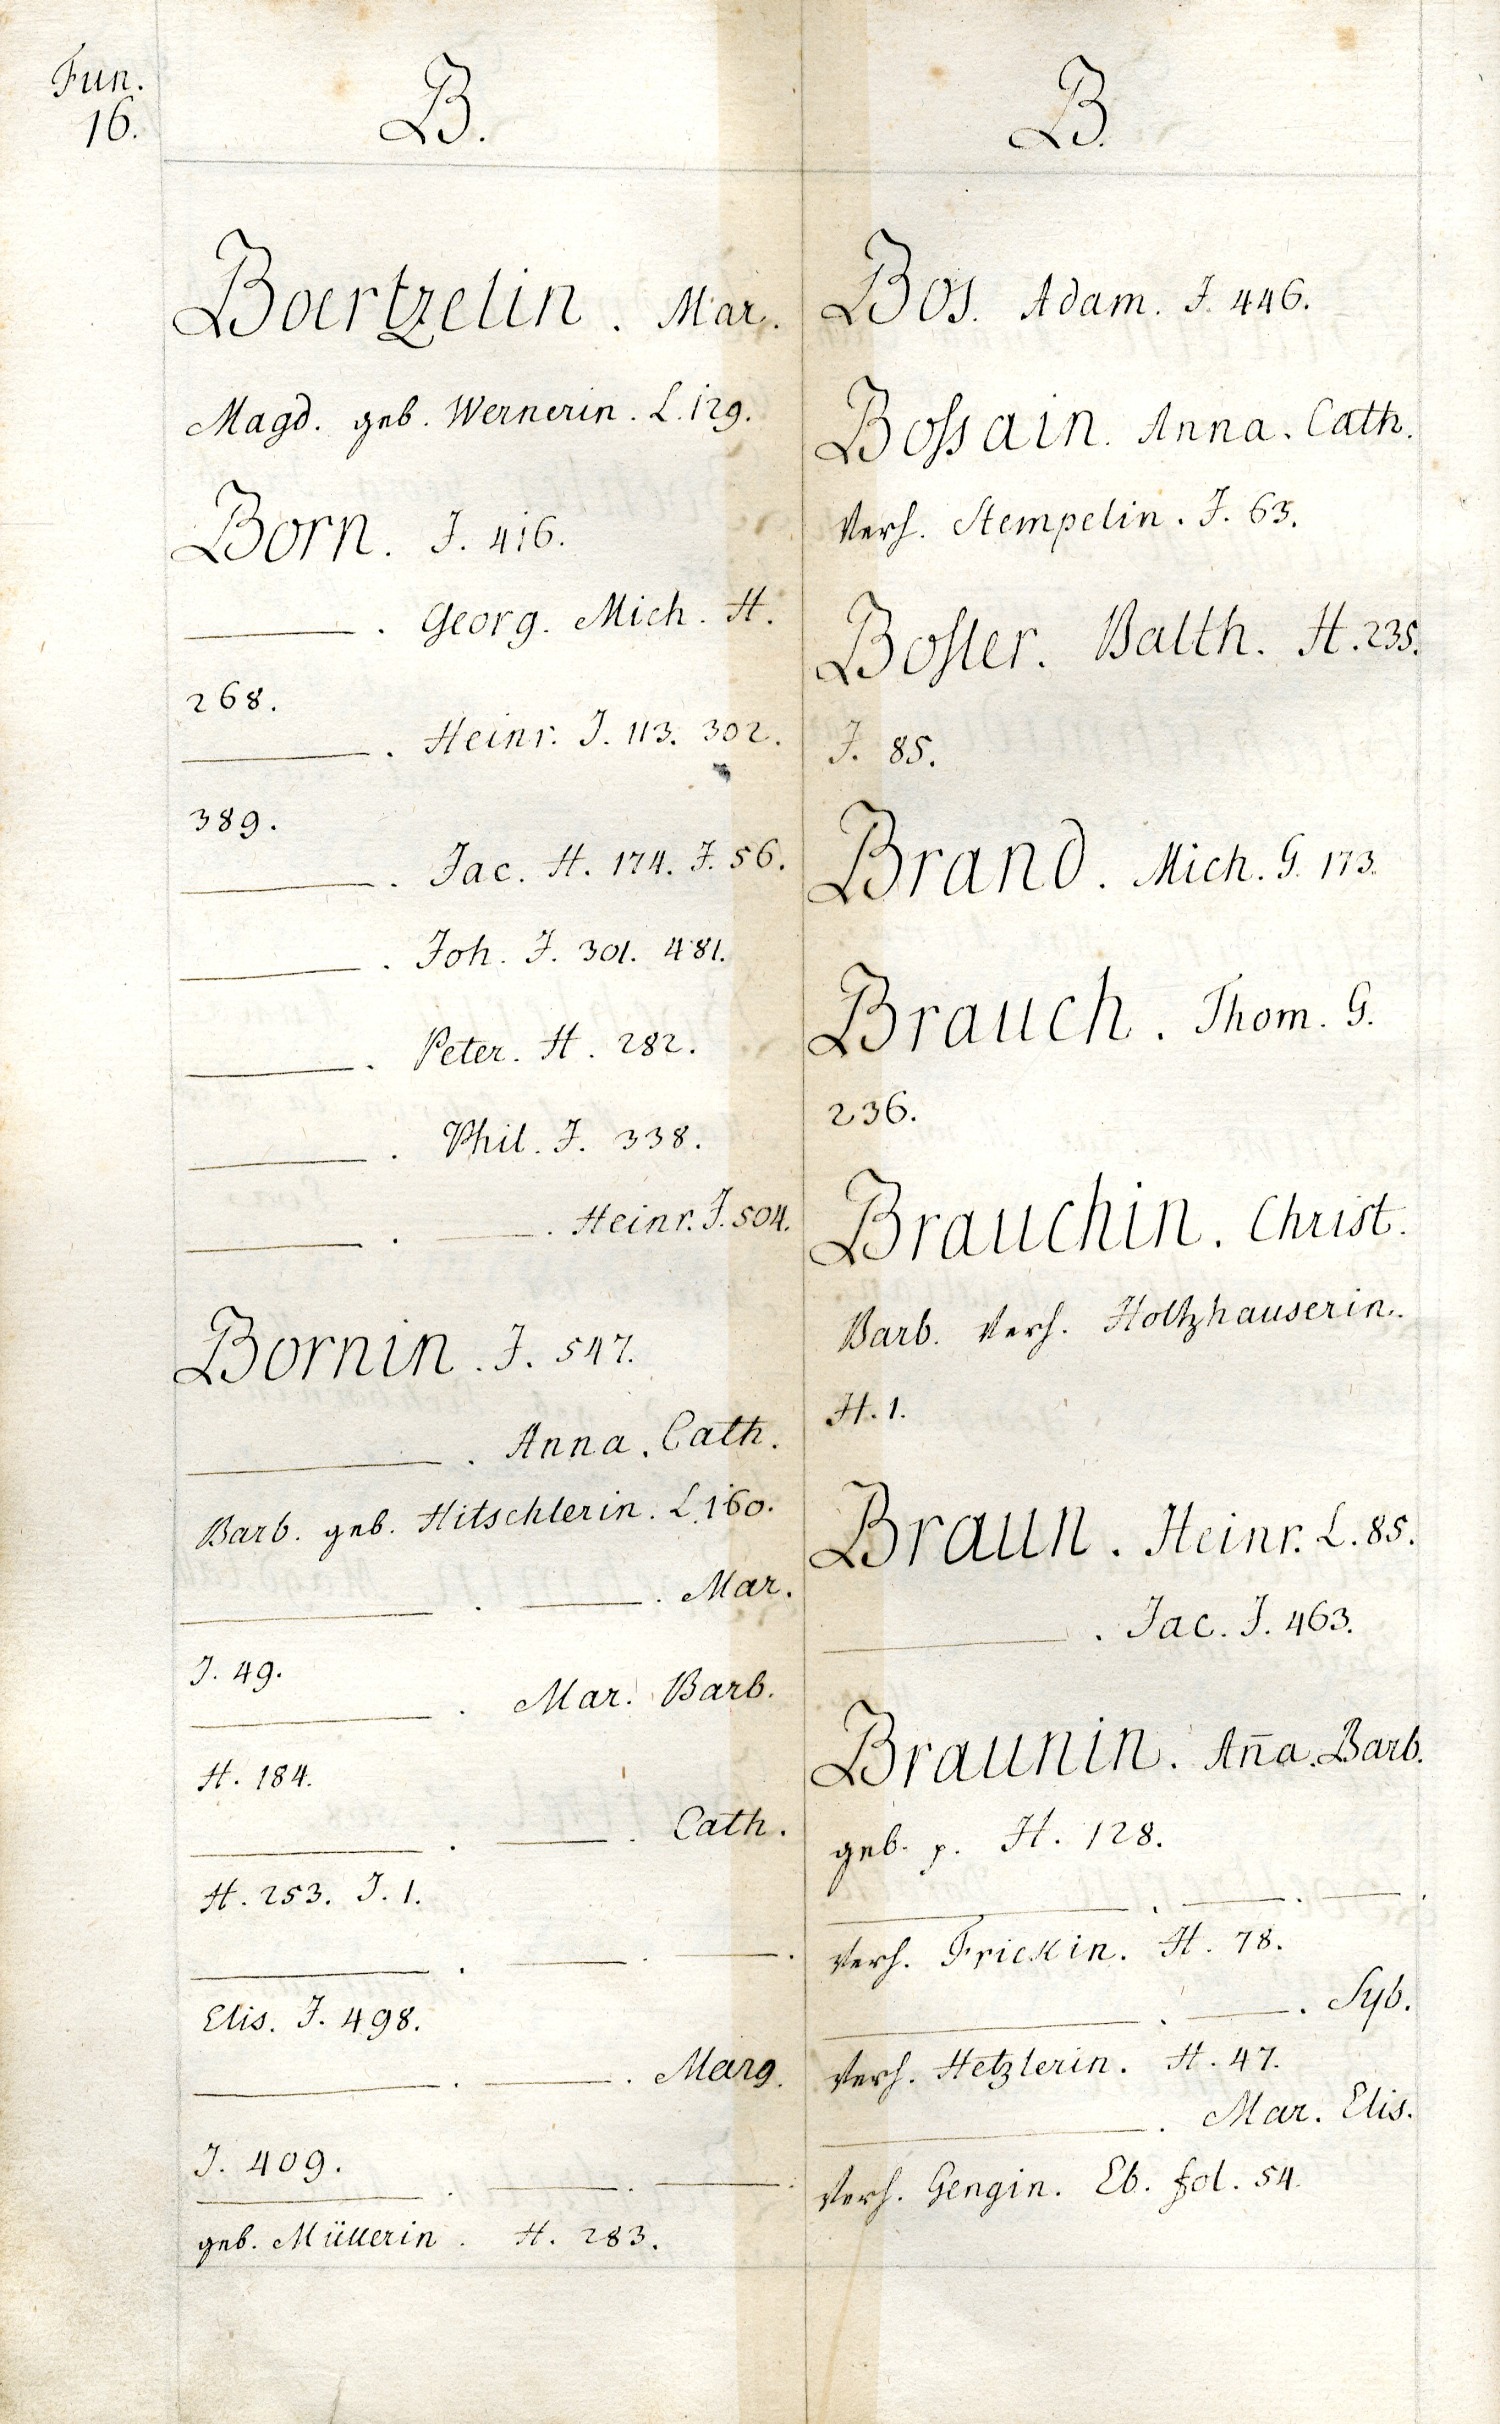 Fun.
16.
B.
Boertzelin. Mar.
Magd. geb. Wernerin. L. 129.
Born. J. 416.
———. Georg. Mich. H.
268.
———. Heinr. J. 113. 302.
389.
———. Jac. H. 174. J. 56.
———. Joh. J. 301. 481.
———. Peter. H. 282.
———. Phil. J. 338.
———. ———. Heinr. J. 504.
Bornin. J. 547.
———. Anna. Cath.
Barb. geb. Hitschlerin. L. 160.
———. ———. Mar.
J. 49.
———. Mar. Barb.
H. 184.
———. ———. Cath.
H. 253. J. 1.
———. ———. ———.
Elis. J. 498.
———. ———. Marg.
J. 409.
———. ———. ———.
geb. Müllerin. H. 283.
B.
Bos. Adam. J. 446.
Boſsain. Anna. Cath.
verh. Stempelin. J. 63.
Boſler. Balth. H. 235.
J. 85.
Brand. Mich. G. 173.
Brauch. Thom. G.
236.
Brauchin. Christ.
Barb. verh. Holtzhauserin.
H. 1.
Braun. Heinr. L. 85.
———. Jac. J. 463.
Braunin. Ana̅. Barb.
geb. p. H. 128.
———. ———. ———.
verh. Frickin. H. 78.
———. ———. Syb.
verh. Hetzlerin. H. 47.
———. Mar. Elis.
verh. Gengin. Eb. fol. 54.